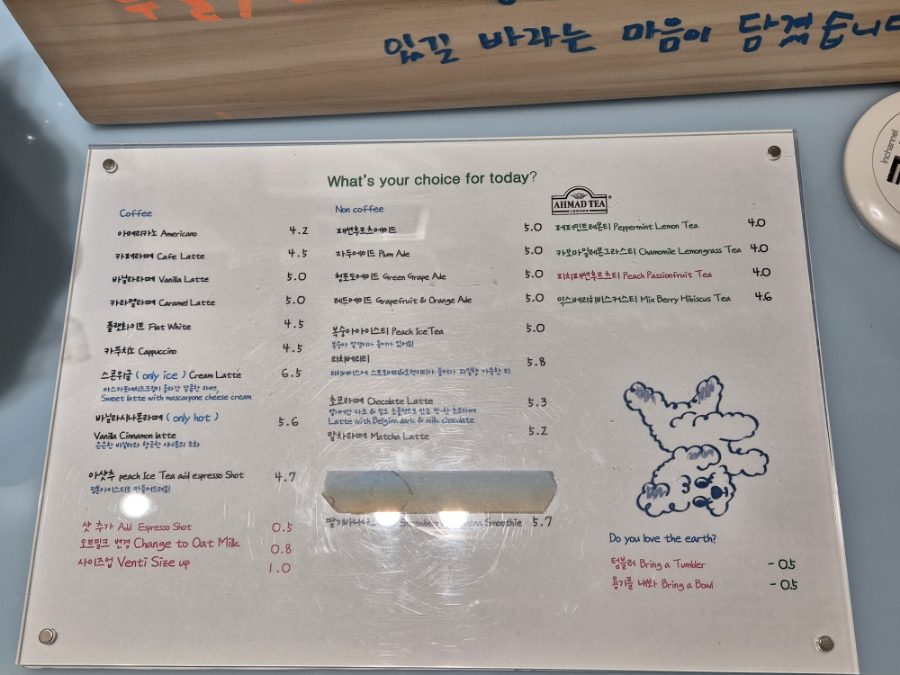 있길 바라는 마음이 담겼습니다
What's your choice for today?
Coffee
아메리카노 Americano 4.2
카페라떼 Cafe Latte 4.5
바닐라라떼 Vanilla Latte 5.0
카라멜라떼 Caramel Latte 5.0
플랫화이트 Flat White 4.5
카푸치노 Cappuccino 4.5
스콘위글 (only ice) Cream Latte 6.5
Sweet latte with mascarpone cheese cream
바닐라시나몬라떼 (only hot) 5.6
Vanilla Cinnamon latte
아샷추 peach Ice Tea add espresso Shot 4.7
샷 추가 Add Espresso Shot 0.5
오트밀크 변경 Change to Oat Milk 0.8
사이즈업 Venti Size up 1.0
Non coffee
패션후르츠에이드 5.0
자두에이드 Plum Ade 5.0
청포도에이드 Green Grape Ade 5.0
레드에이드 Grapefruit & Orange Ade 5.0
복숭아아이스티 Peach Ice Tea 5.0
복숭아 알갱이가 들어가 있어요!
리치베리티 5.8
초코라떼 Chocolate Latte 5.3
Latte with Belgian dark & milk chocolate
말차라떼 Matcha Latte 5.2
Smoothie 5.7
AHMAD TEA
LONDON
페퍼민트레몬티 Peppermint Lemon Tea 4.0
카모마일레몬그라스티 Chamomile Lemongrass Tea 4.0
피치패션후르츠티 Peach Passionfruit Tea 4.0
믹스베리히비스커스티 Mix Berry Hibiscus Tea 4.6
Do you love the earth?
텀블러 Bring a Tumbler - 0.5
용기를 내봐 Bring a Bowl - 0.5
Inchannel